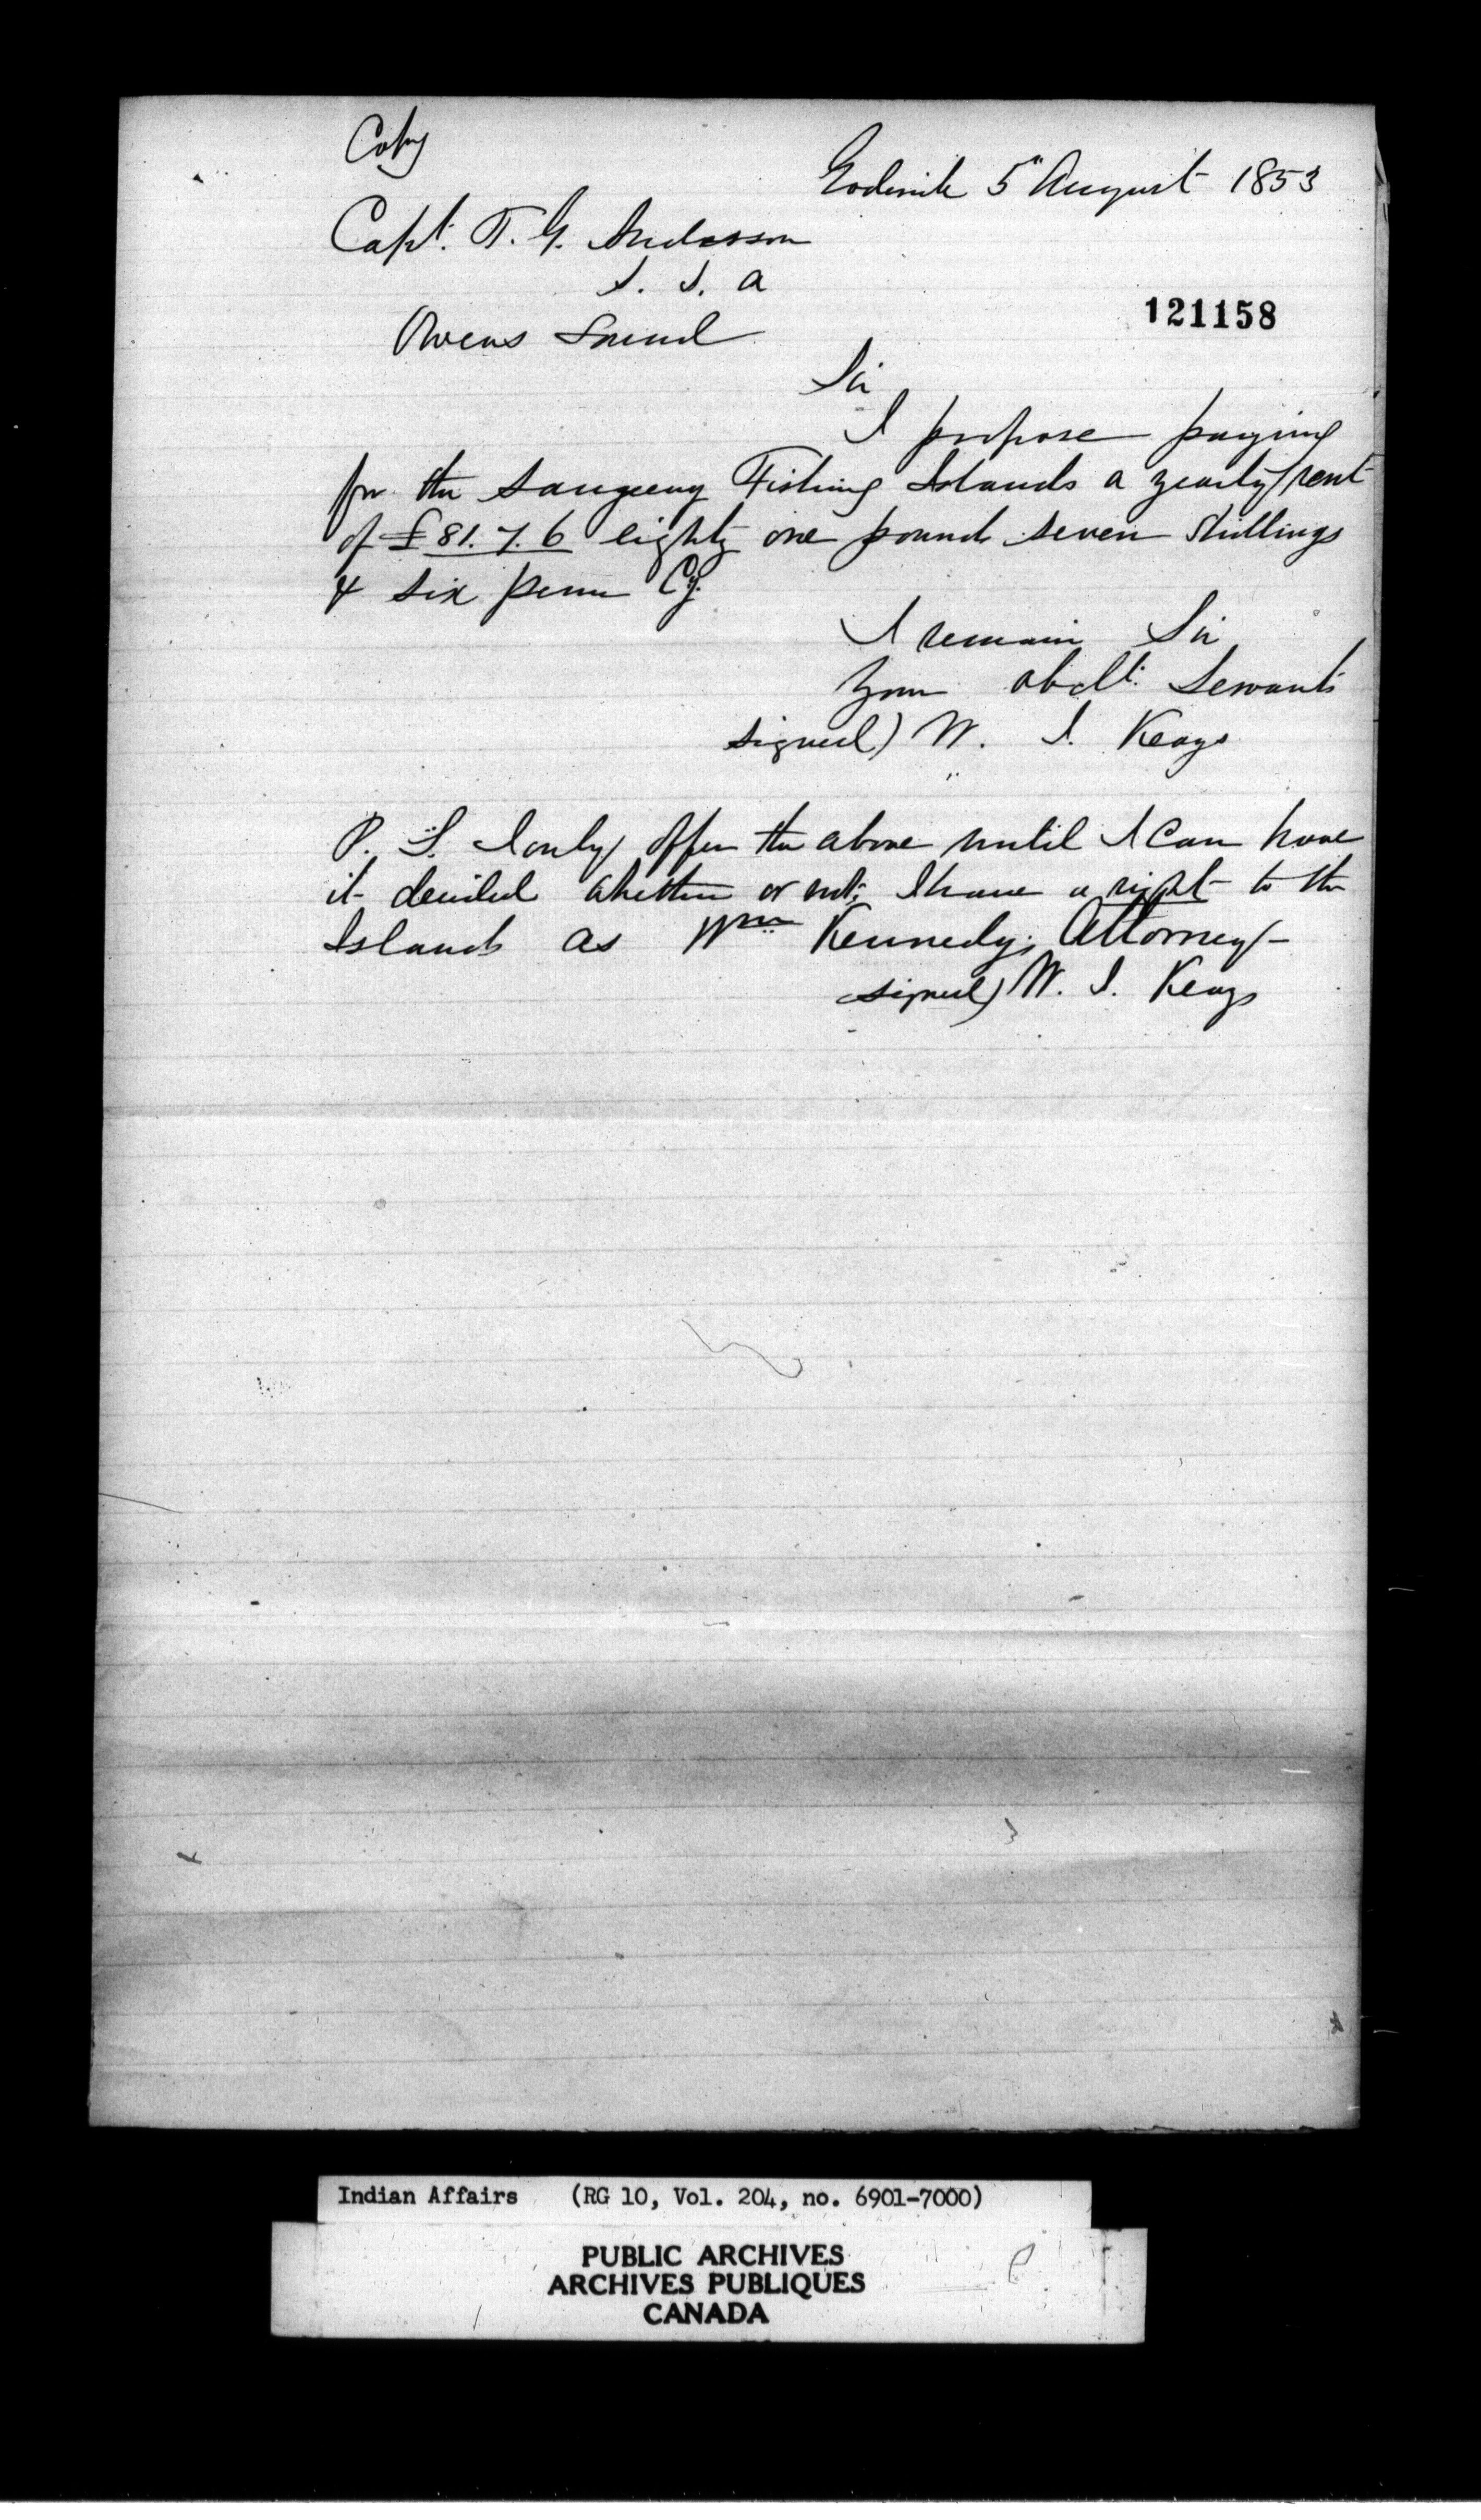 Copy
Goderich 5" August 1853
Capt. T. G. Anderson
S. I. A
121158
Owens Sound
Sir
I propose paying
for the Saugeeng Fishing Islands a yearly rent
of £81. 7. 6 eighty one pounds seven Shillings
& six pence Cy.
I remain Sir
Your obdt. Servant
signed) W. I. Keays
P. S. I only offer the above until I Can have
it decided whether or not I have a right to the
Islands as Wm Kennedys Attorney-
signed) W. I. Keays
Indian Affairs (RG 10, Vol. 204, no. 6901-7000)
PUBLIC ARCHIVES
ARCHIVES PUBLIQUES
CANADA